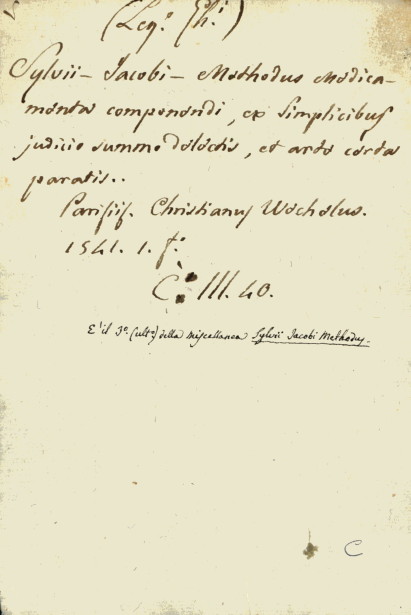 (Leg.º Ch.i)
Sylvii – Jacobi – Methodus Medica-
menta componendi, ex simplicibus
judicio summo delectis, et arte certa
paratis..
Parisiis. Christianus Wechelus.
1541. 1. f.º
C. III. 40.
E' il 3º. (ult.º) della Miscellanea Sylvii Jacobi Methodus.
C